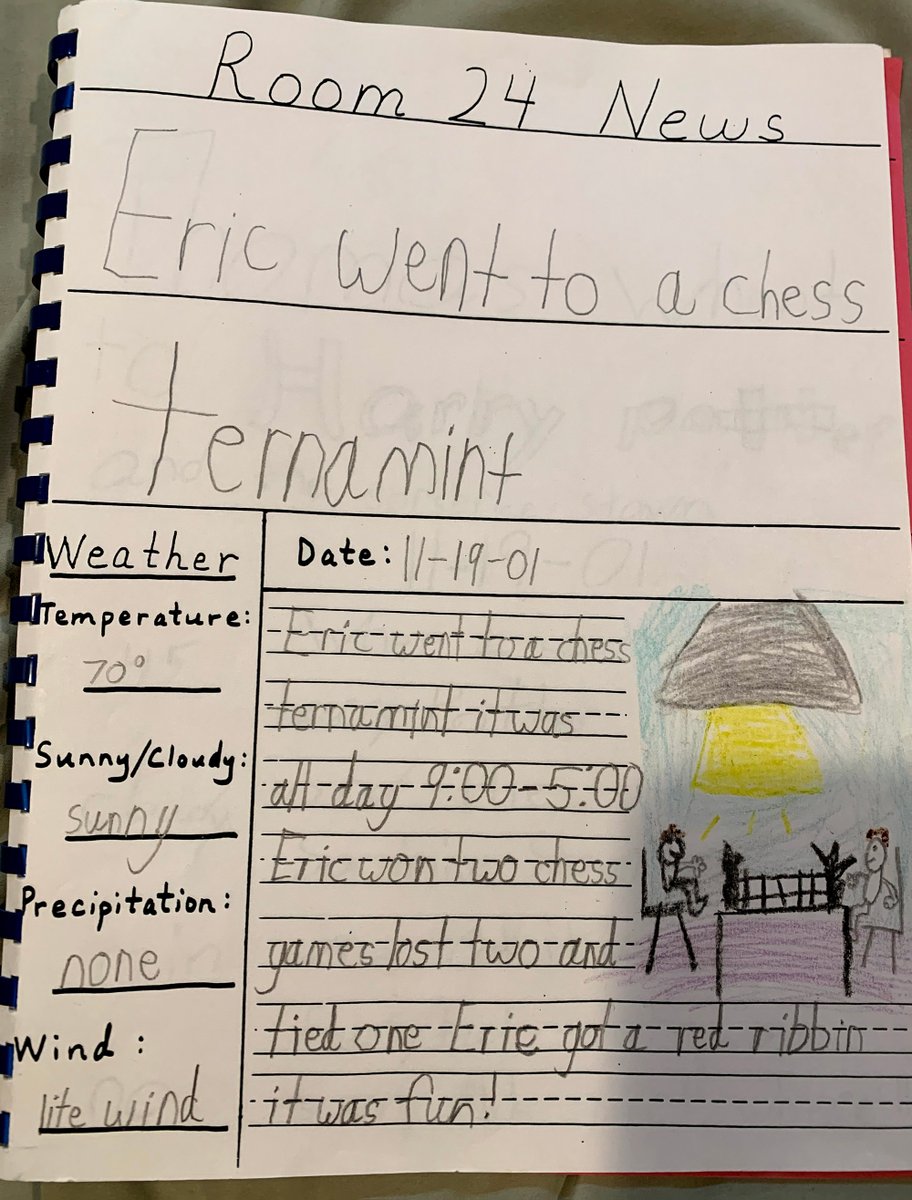 Room 24 News
Eric went to a chess
ternamint
Weather
Temperature:
70°
Sunny/Cloudy:
sunny
Precipitation:
none
Wind :
lite wind
Date: 11-19-01
Eric went to a chess
ternamint it was
all day 9:00-5:00
Eric won two chess
games lost two and
tied one Eric got a red ribbin
it was fun!